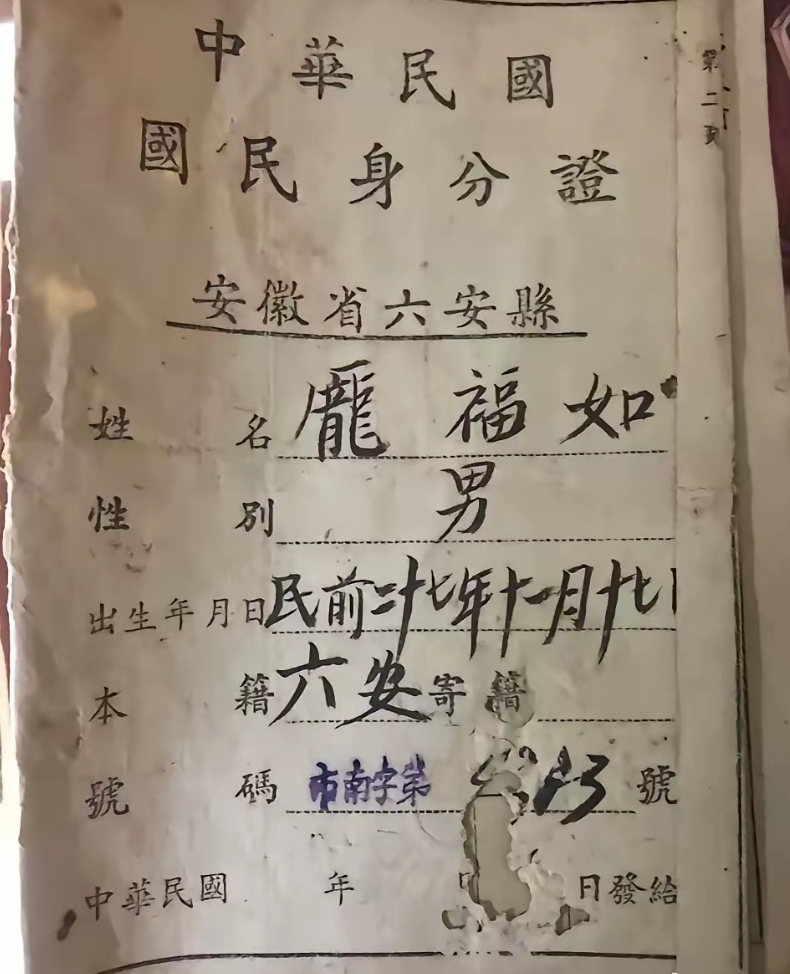 中華民國
國民身分證
第二頁
安徽省六安縣
姓名 龐福如
性別 男
出生年月日 民前二十七年十一月十七日
本籍 六安 寄籍
號碼 市南字第 號
中華民國 年 月 日發給